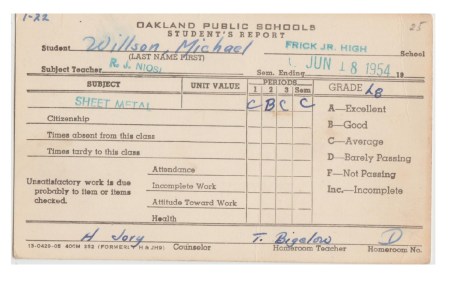 1-22
OAKLAND PUBLIC SCHOOLS
STUDENT'S REPORT
25
Student Willson, Michael FRICK JR. HIGH School
(LAST NAME FIRST)
Subject Teacher R. J. NIOSI Sem. Ending JUN 18 1954 19
SUBJECT UNIT VALUE PERIODS GRADE L8
1 2 3 Sem
SHEET METAL C B C C
A—Excellent
Citizenship
B—Good
Times absent from this class
C—Average
Times tardy to this class
D—Barely Passing
Unsatisfactory work is due probably to item or items checked.
Attendance
F—Not Passing
Incomplete Work
Inc.—Incomplete
Attitude Toward Work
Health
H Jory T. Bigalow D
Counselor Homeroom Teacher Homeroom No.